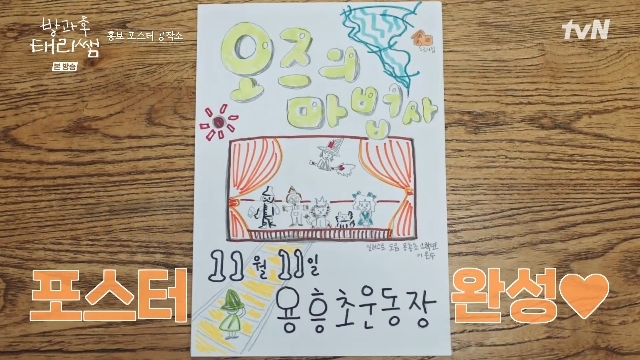 방과후
태리쌤
본 방송
홍보 포스터 공작소
tvN
오즈의
마법사
11월 11일
용흥초운동장
포스터 완성♥